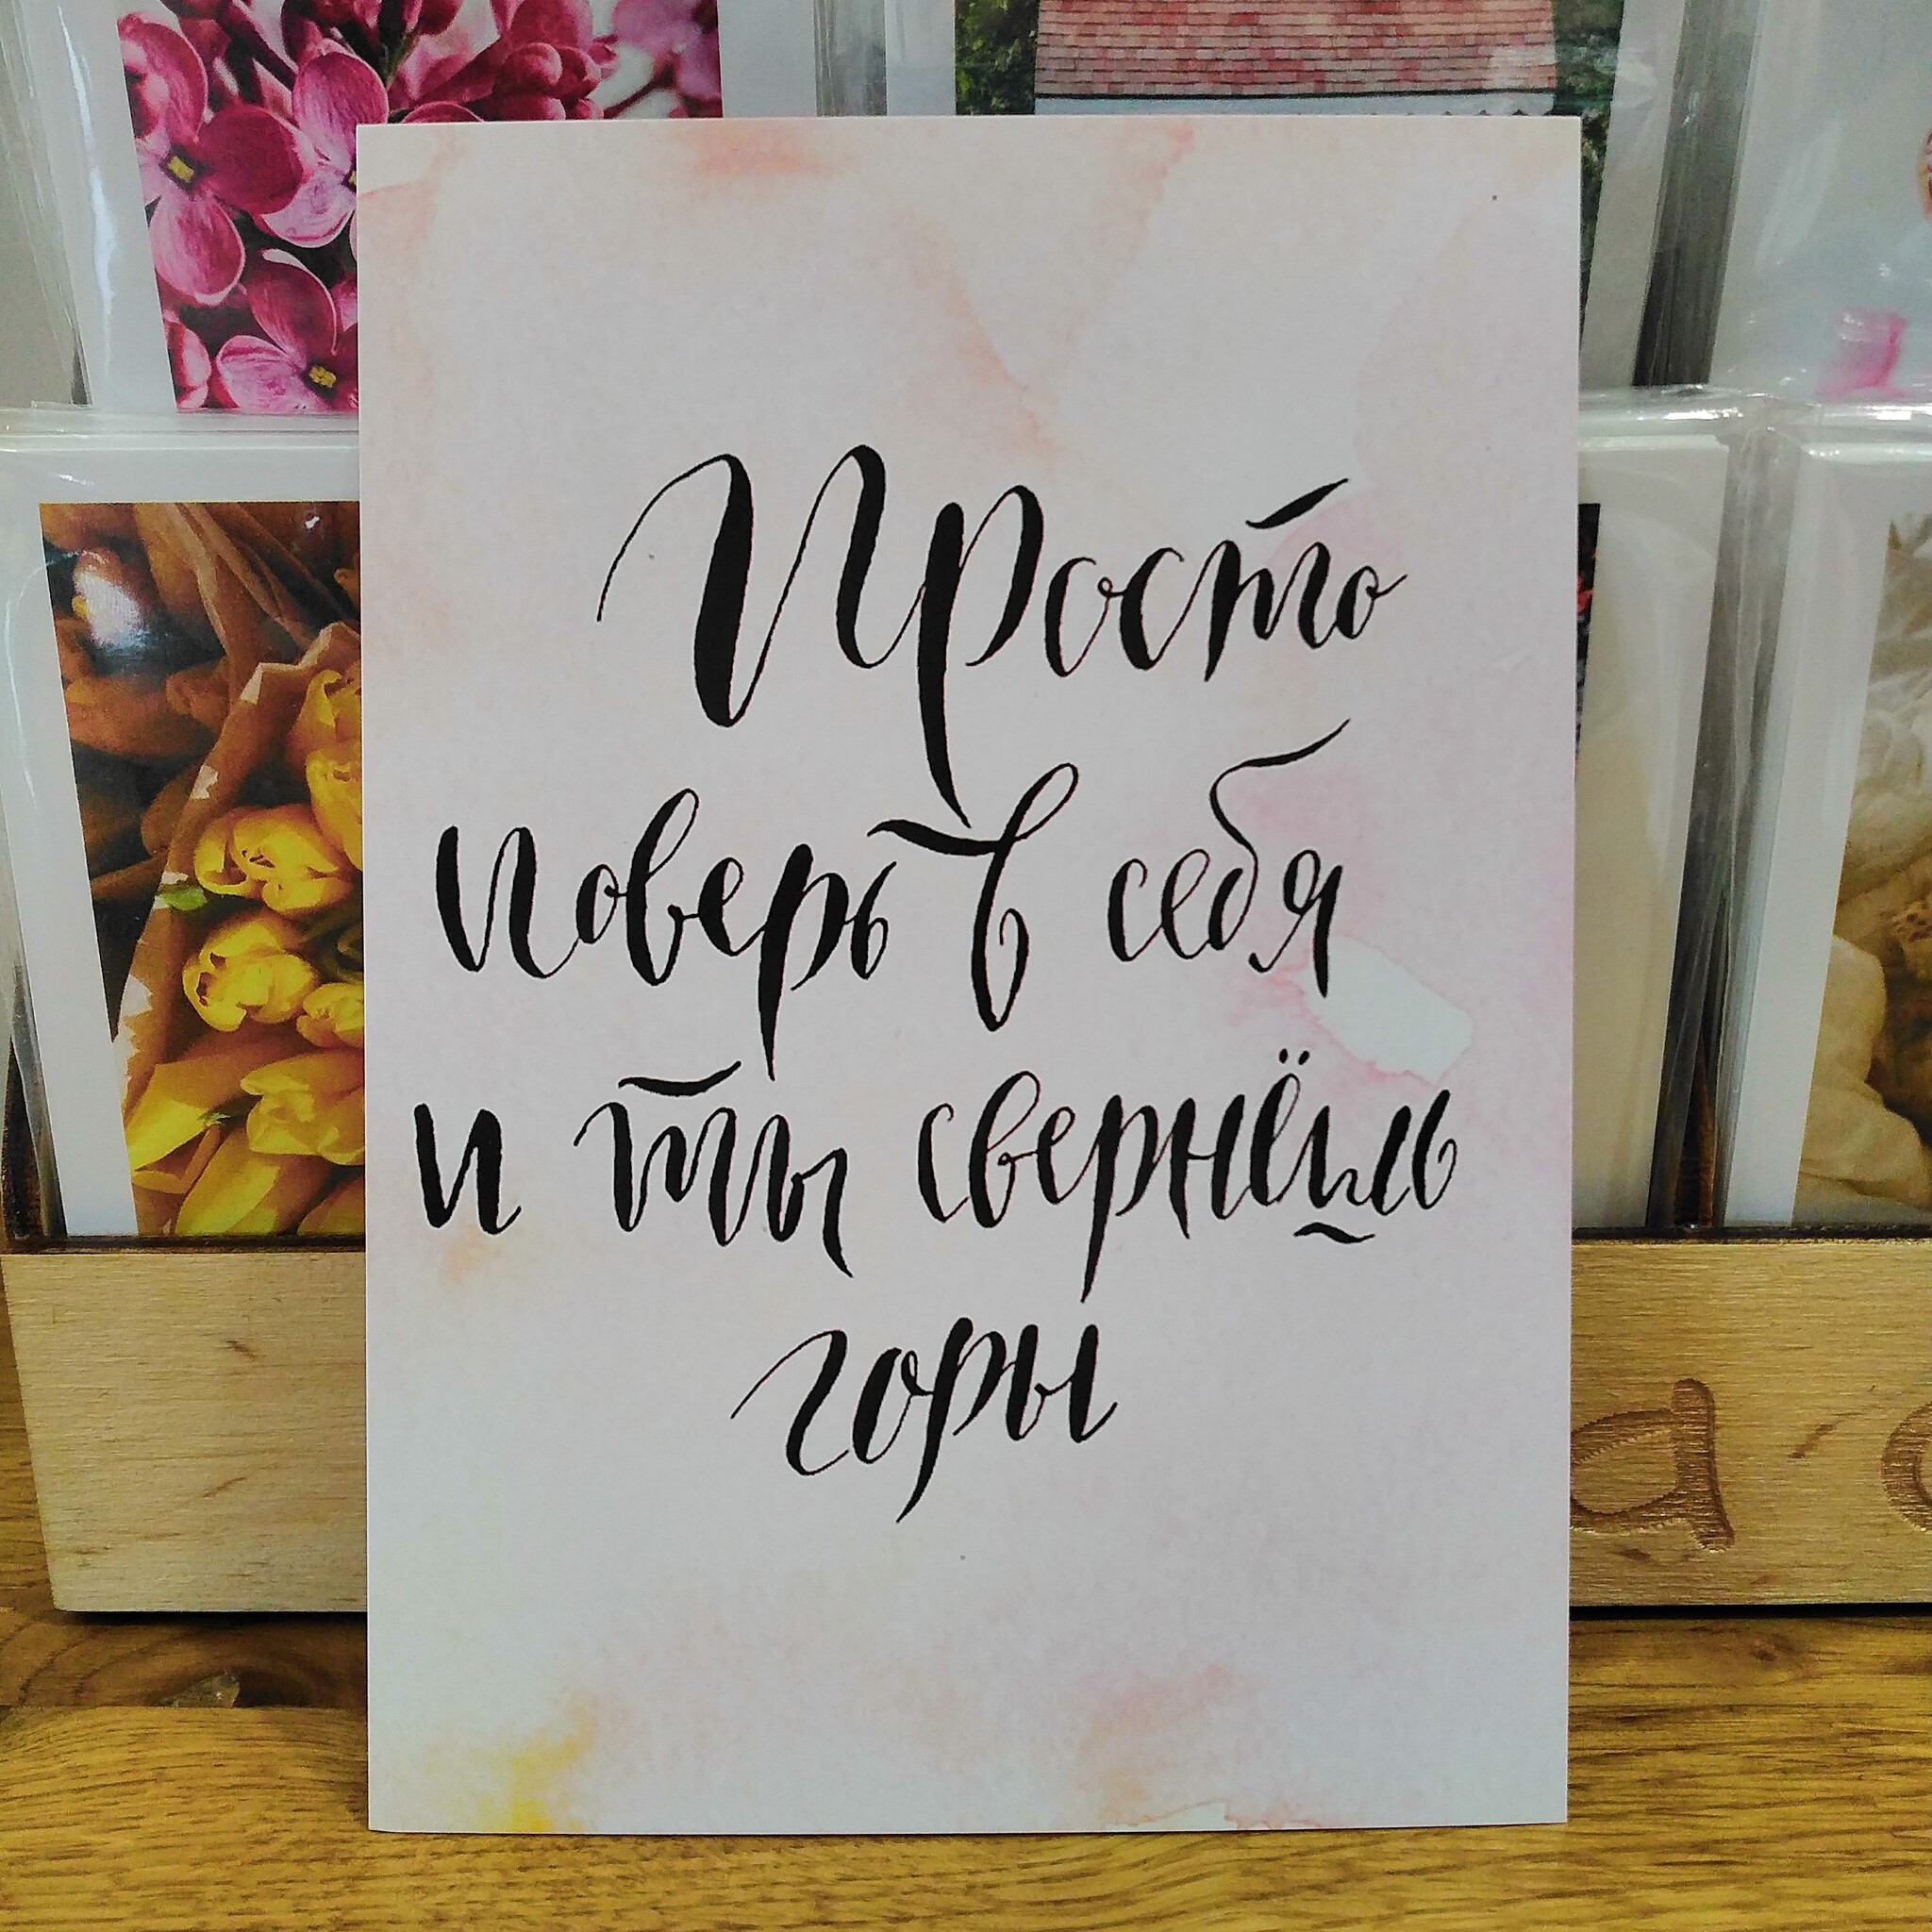 Просто
поверь в себя
и ты свернёшь
горы
a